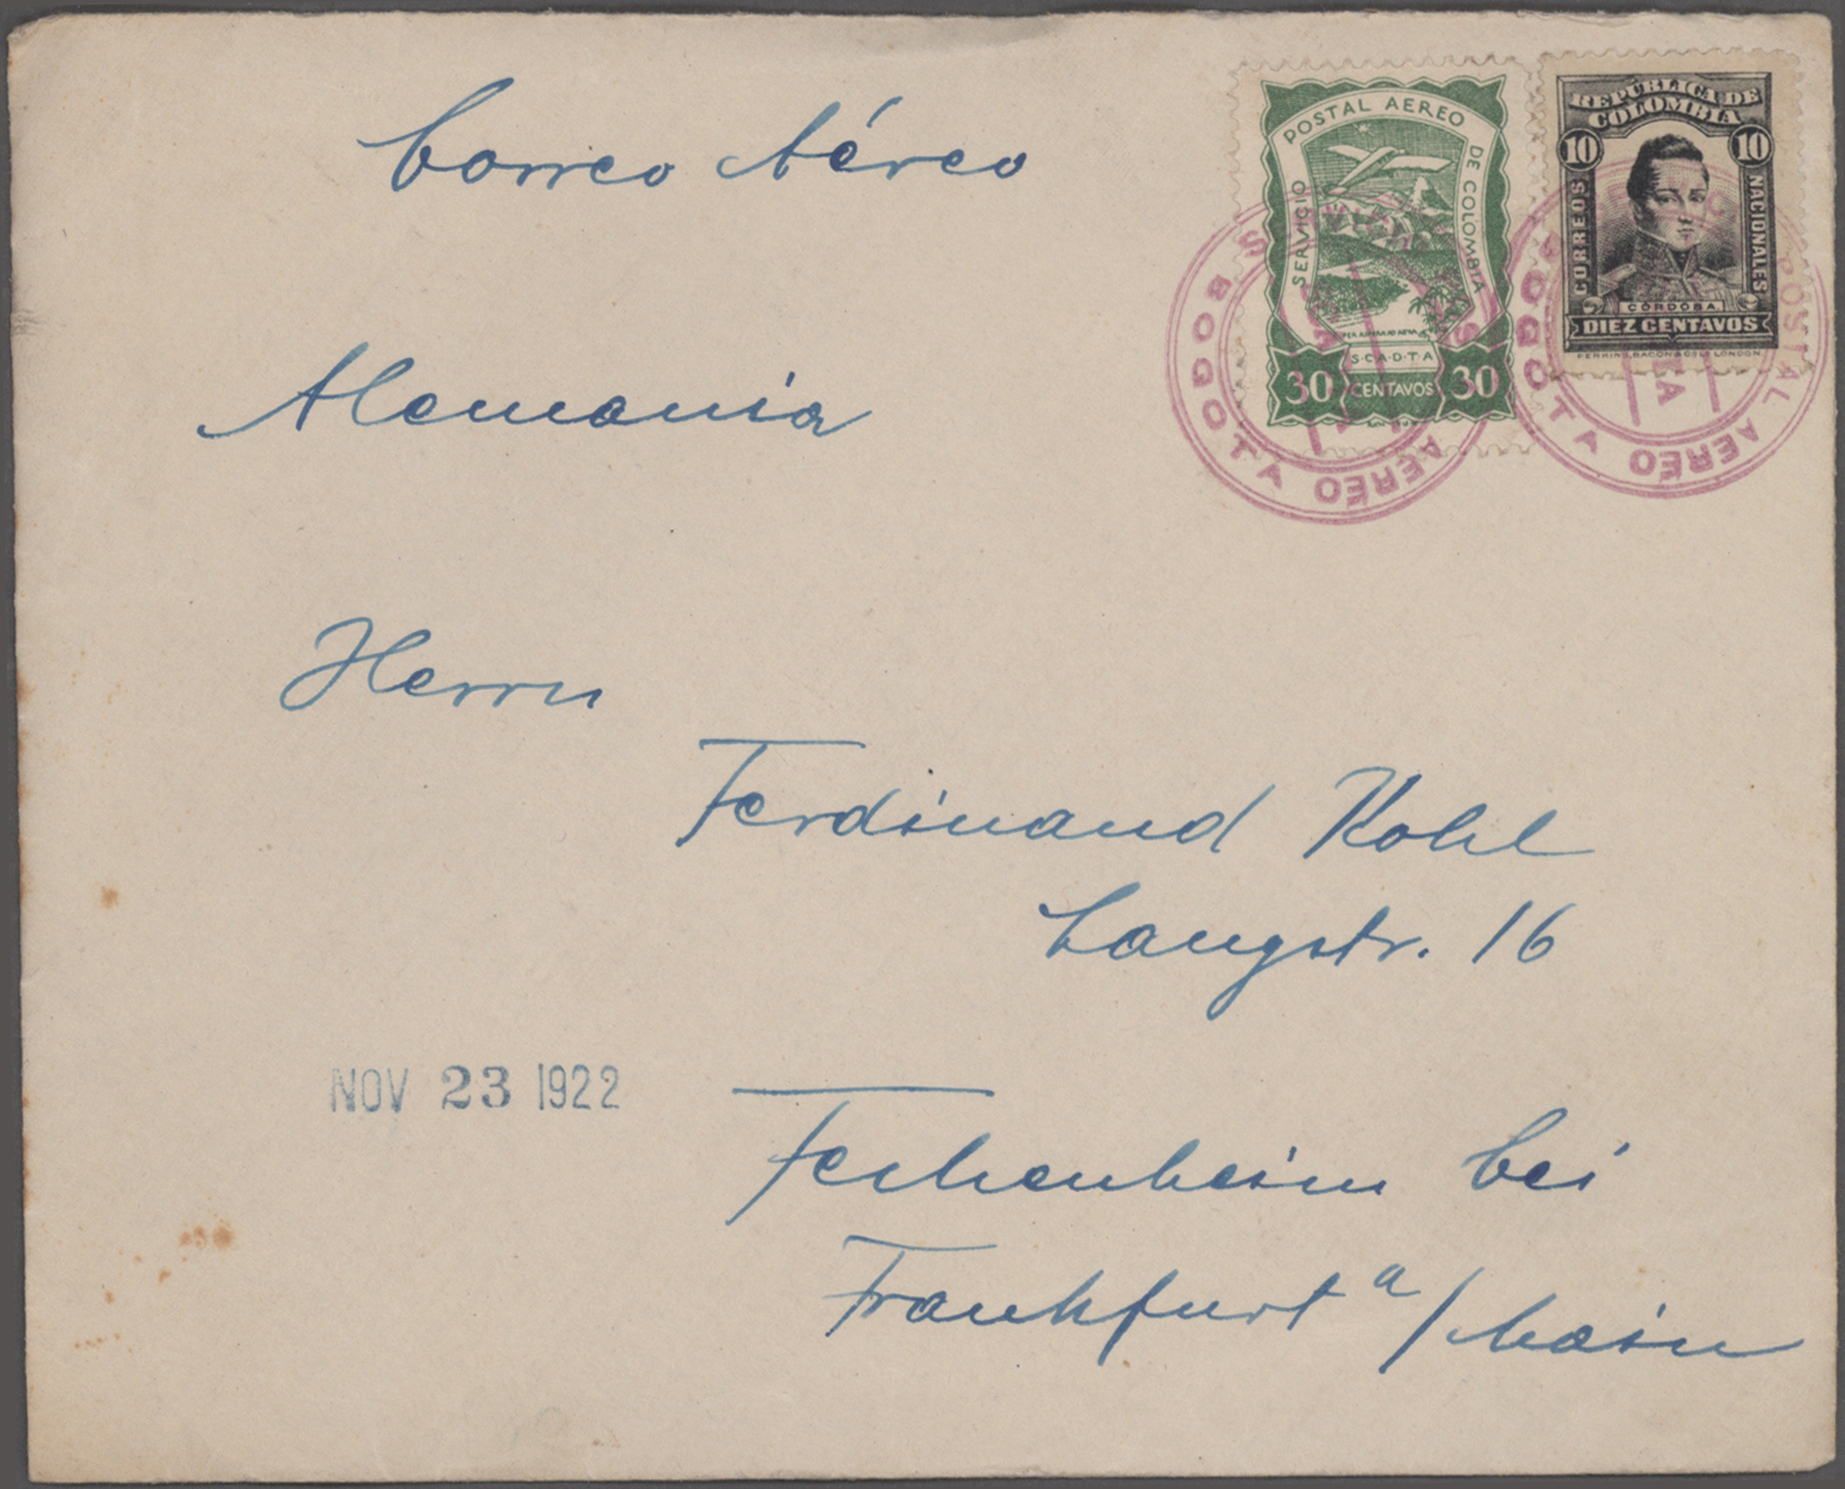 Correo Aéreo
Alemania
POSTAL AEREO
SERVICIO
DE COLOMBIA
S·C·A·D·T·A
30 CENTAVOS 30
REPÚBLICA DE
COLOMBIA
10 10
CORREOS
NACIONALES
CÓRDOBA
DIEZ CENTAVOS
PERKINS, BACON & CO LD LONDON
BOGOTA
AEREO
BOGOTA
POSTAL AEREO
Herrn
Ferdinand Kohl
Langstr. 16
NOV 23 1922
Fechenheim bei
Frankfurt a/Main